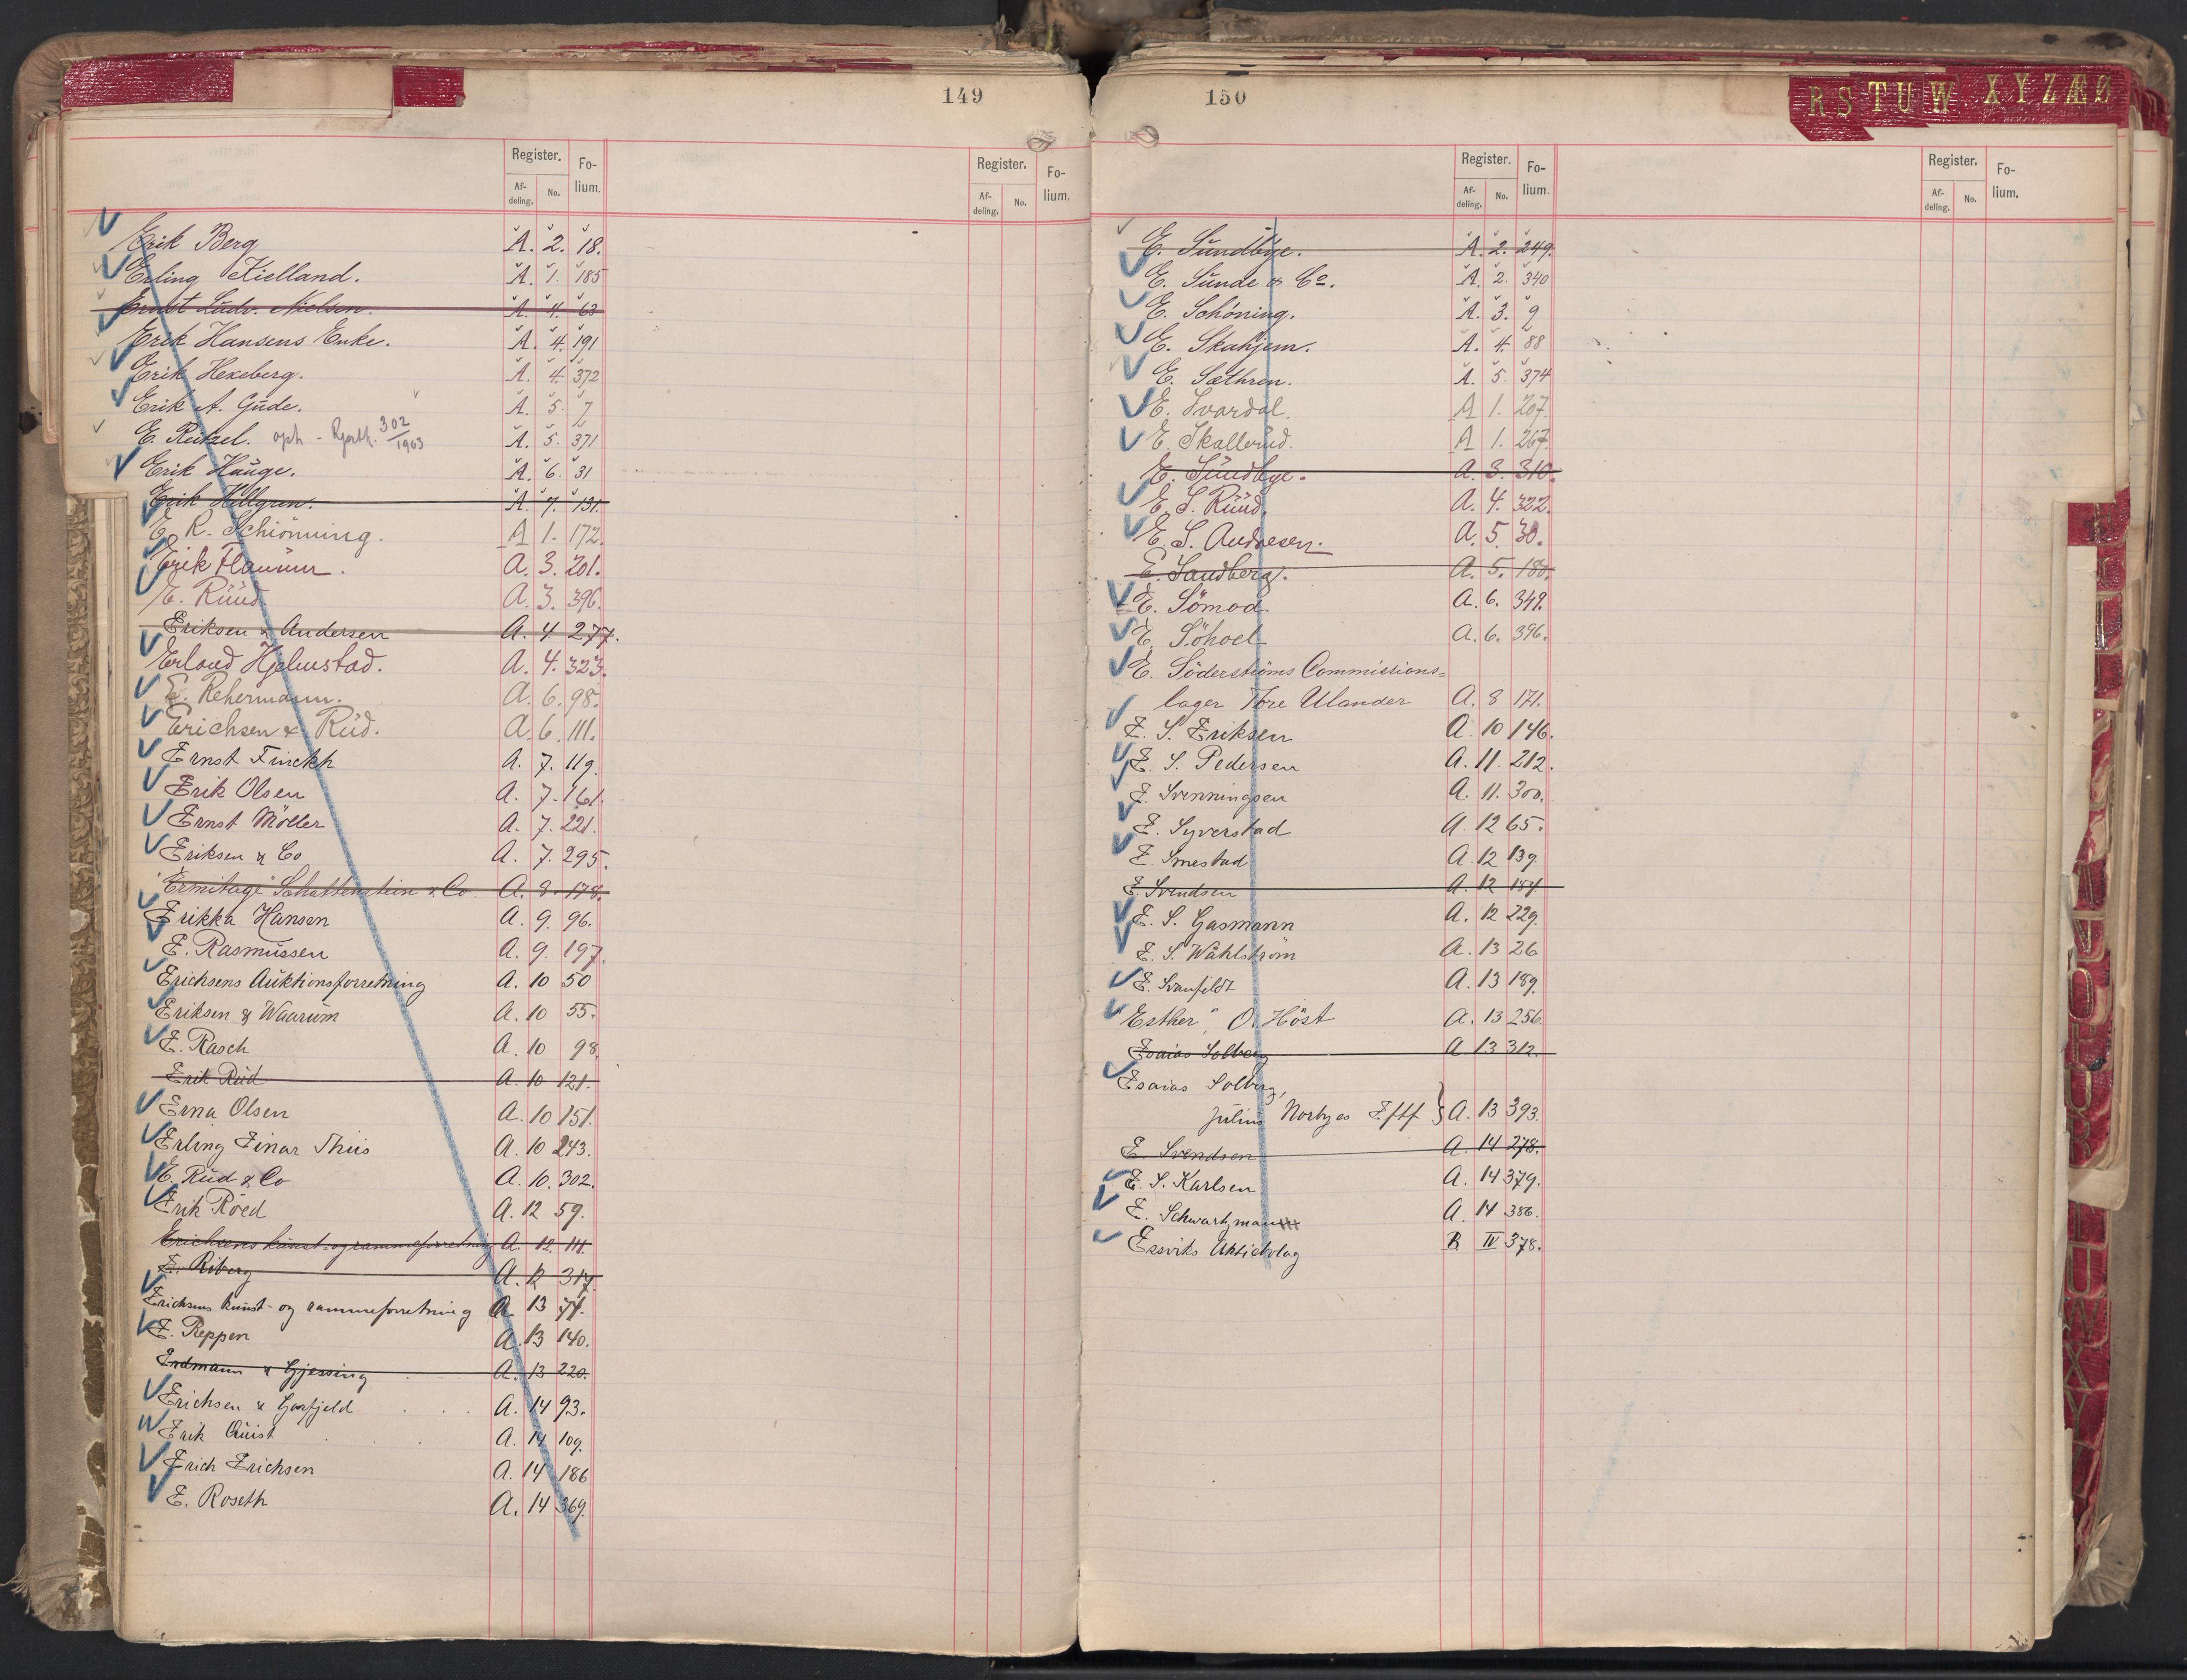 149
Register. Fo-
Af-
deling. No. lium.
Register. Fo-
Af-
deling. No. lium.
Erik Berg A. 2. 18.
Erling Kielland. A. 1. 185
Ernst Ludv. Nielsen. A. 4. 63
Erik Hansens Enke. A. 4. 191
Erik Hexeberg. A. 4. 372
Erik A. Gude. A. 5. 7
E. Reitzel. oph - 302/1903 A. 5. 371
Erik Hauge. A. 6. 31
Erik Hellgren. A. 7. 131.
E. R. Schiönning. A 1. 172.
Erik Flaum. A. 3. 201.
E. Ruud A. 3. 396.
Eriksen & Andersen A. 4. 277.
Erland Hjelmstad. A. 4. 323.
E. Rehermann. A. 6. 98.
Erichsen & Rud. A. 6. 111.
Ernst Finckh A. 7. 119.
Erik Olsen A. 7. 161.
Ernst Möller A. 7. 221.
Eriksen & Co A. 7. 295.
"Ermitage" Schattenstein & Co A. 8. 178.
Erikka Hansen A. 9. 96.
E. Rasmussen A. 9. 197.
Erichsens Auktionsforretning A. 10 50
Eriksen & Waarum A. 10 55.
E. Rasch A. 10 98.
Erik Rud A. 10 121.
Erna Olsen A. 10 151.
Erling Einar Thiis A. 10 243.
E. Rud & Co A. 10. 302.
Erik Röed A. 12 59.
Erichsens kunst- og rammeforretning A. 12. 111.
E. Riberg A. 12 317.
Erichsens kunst- og rammeforretning A 13 74.
E. Reppen A. 13 140.
Erdmann & Gjessing A. 13 220.
Erichsen & Garfjeld A. 14 93.
Erik Quist A. 14 109.
Erich Erichsen A. 14 186
E. Roseth A. 14 369.
150
R S T U W X Y Z Æ Ø
Register. Fo-
Af-
deling. No. lium.
Register. Fo-
Af-
deling. No. lium.
E. Sundbye. A. 2. 249.
E. Sunde & Co. A. 2. 340
E. Schöning. A. 3. 9
E. Skahjem. A. 4. 88
E. Sæthren. A. 5. 374
E. Svardal. A 1. 207.
E. Skallerud. A 1. 267
E. Sundbye. A. 3. 310.
E. S. Ruud. A. 4. 322.
E. S. Andresen. A. 5. 30.
E. Sandberg. A. 5. 180.
E. Sömod A. 6. 349.
E. Söhoel A. 6. 396.
E. Söderströms Commissions=
lager Tore Ulander A. 8 171.
E. S. Eriksen A. 10 146.
E. S. Pedersen A. 11. 212.
E. Svenningsen A. 11. 300.
E. Syverstad A. 12 65.
E. Smestad A. 12 139.
E. Svendsen A. 12 184
E. S. Gasmann A. 12 229.
E. S. Wahlström A. 13 26
E. Svanfeldt A. 13 189.
"Esther", O. Höst A. 13 256.
Esaias Solberg A. 13 312.
Esaias Solberg,
Julius Norbyes Eftf } A. 13 393.
E. Svendsen A. 14 278.
E. S. Karlsen A. 14 379.
E. Schwartzman A. 14 386.
Essviks Aktiebolag B IV 378.